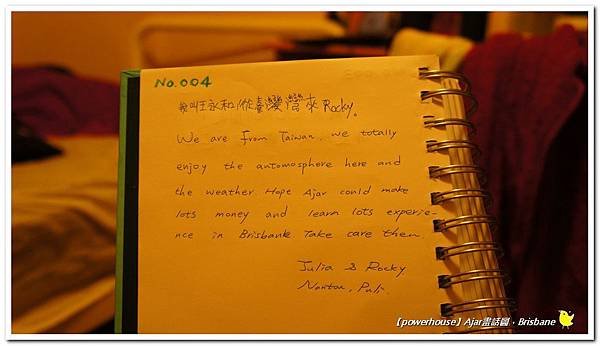 No.004
我叫王永和/從臺灣灣來 Rocky。
We are from Taiwan. we totally
enjoy the antomosphere here and
the weather. Hope Ajar could make
lots money and learn lots experie-
nce in Brisbank. Take care then.
Julia & Rocky
Nantou, Puli.
【powerhouse】Ajar畫話圓‧Brisbane